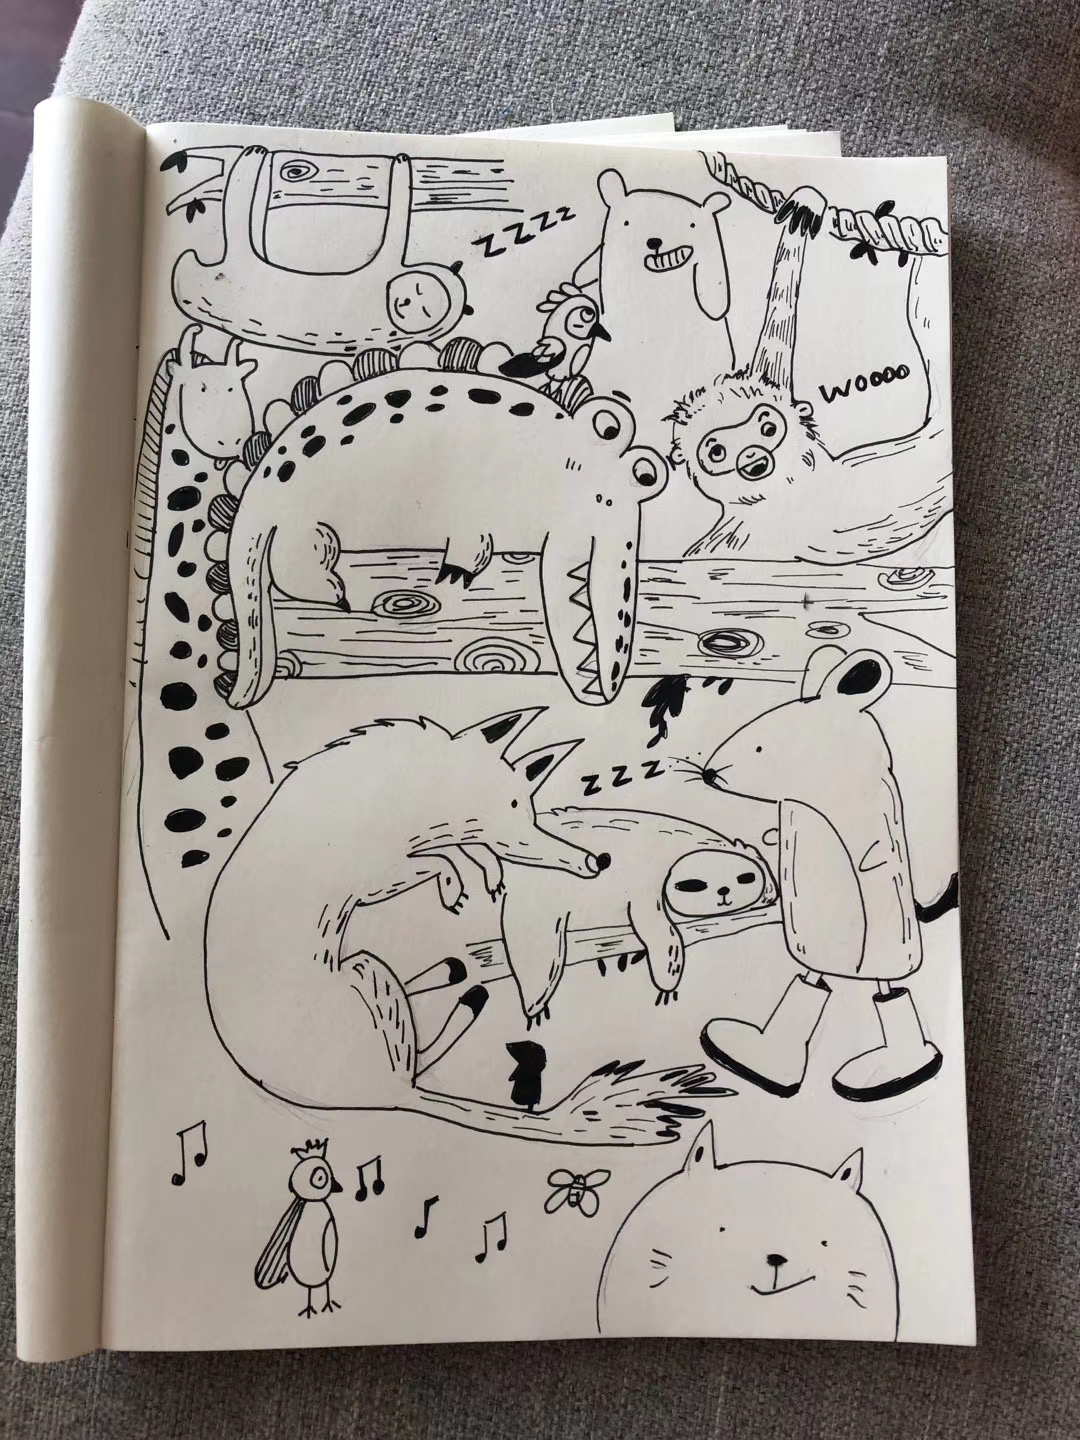 ZZZZ
WOOOO
ZZZ